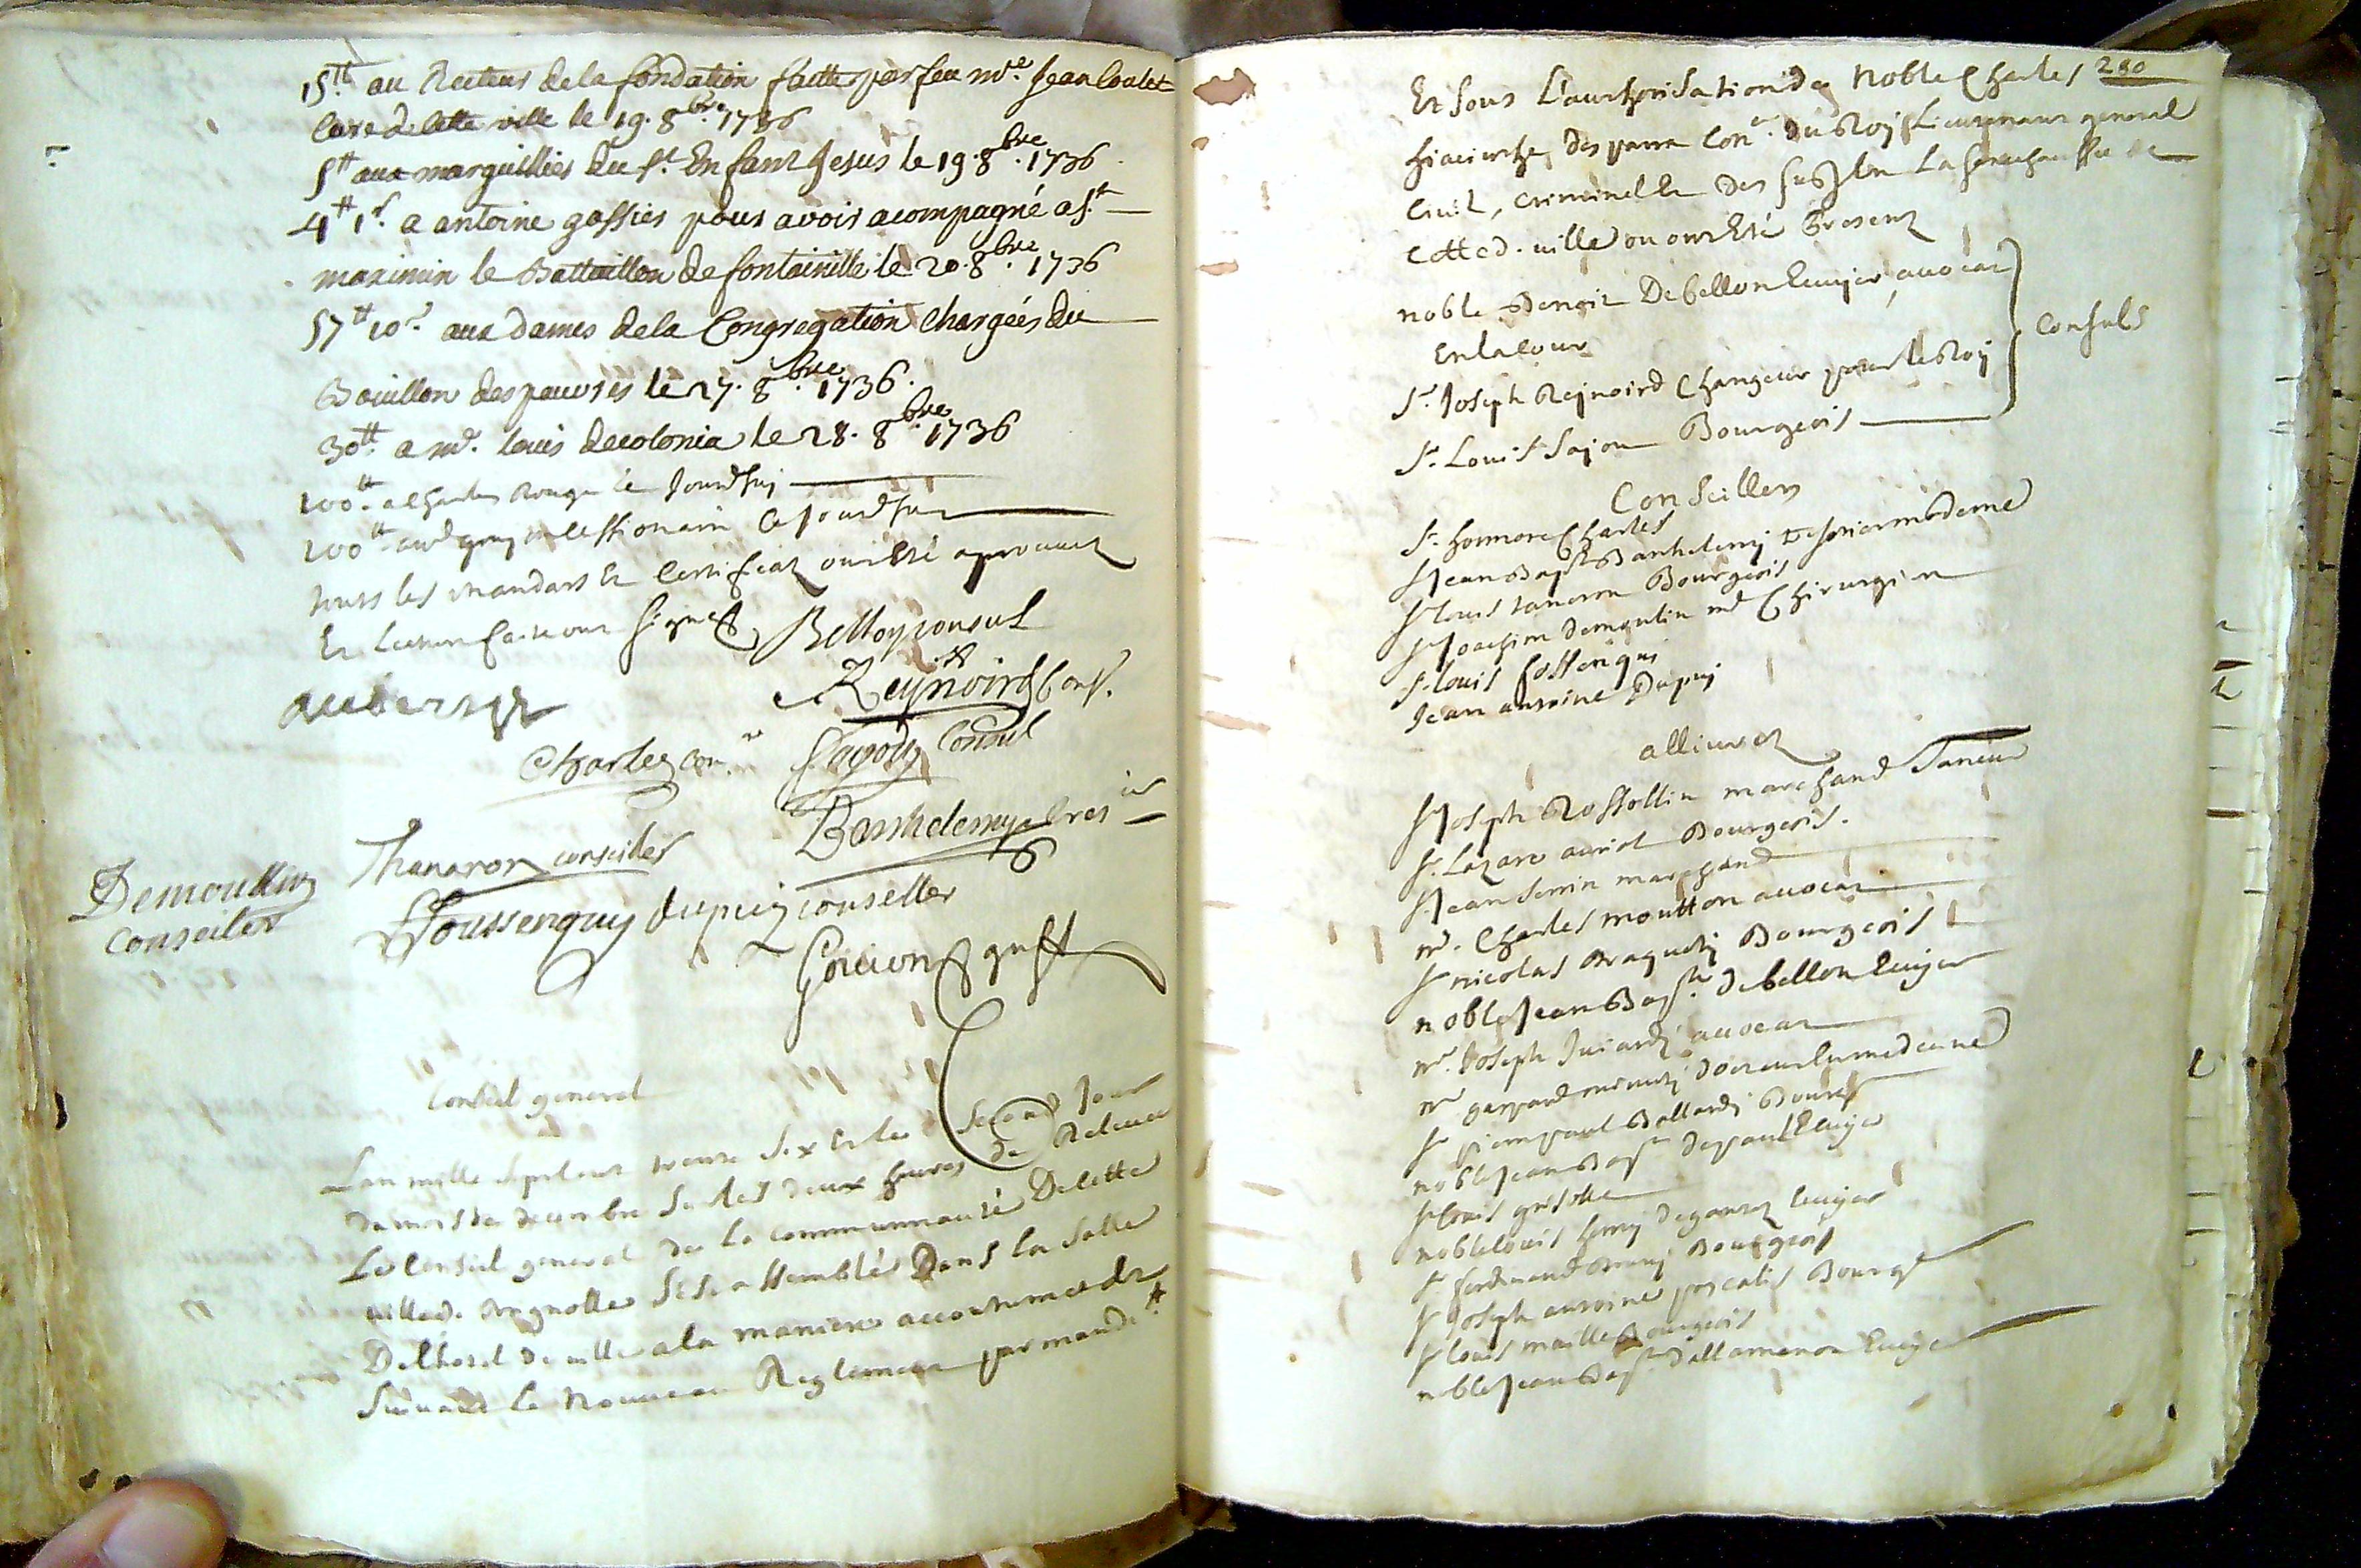 15tt au Recteur de la fondation faitte par feu mre. Jean Coulet
Curé de cette ville le 19. 8bre. 1736
5tt aux marguilliés du St. Enfant Jesus le 19. 8bre. 1736
4tt 1s. a antoine gassier pour avoir acompagné a St.
maximin le Battaillon de fontainille le 20. 8bre. 1736
57tt 10s. aux dames de la Congregation chargées du
Bouillon des pauvres le 27. 8bre. 1736.
30tt a mr. louis decolonia le 28. 8bre. 1736
100tt a Charles Rouge le Jourdhuy
100tt au missionaire Cejourdhuy
touts les mandats Et Certificats ont Esté aprouvez
Et Lecture faite ont signez
Bellon consul
Reynoird Cons.
auberge
Charles con.r
Consul
Barthelemy tres.ier
Thanaron conseiller
Demoullin
conseiller
Foussenquy dupuy conseller
Gouion greff
Conseil general
Lan mille Sept Cent trente Six Et le Second Jour
du mois de decembre Sur les deux heures de Relevée
Le Conseil general de la Communnauté De Cette
ville de Brignolle Sest assemblés Dans la Salle
De Lhotel de ville a la maniere accoutumée &
Suivant le Nouveau Reglement par mandt.
280
Et Sous L'authorisation de Noble Charles
hiacinthe desparra Con.er du Roy Lieutenant general
Civil, criminel En la Senechaussée de
Cette d. ville ou ont Esté Presents
noble Benoit De bellon Ecuyer, avocat
En la Cour
Sr. Joseph Reynoird Changeur pour le Roy
Sr. Louis Sajou Bourgeois
Consuls
Conseillers
Sr. honnoré Charles
Sr Jean Bapt. Barthelemy tresorier moderne
Sr louis tanaron Bourgeois
Sr Joachim demoulin me Chirurgien
Sr. louis fossenqui
Jean antoine Dupuy
allivrez
Sr Joseph Rossollin marchand Taneur
Sr. Lazare auriol Bourgeois.
Sr Jean Serrin marchand
mr. Charles moutton avocat
Sr nicolas Braguety Bourgeois
noble Jean Bapt. de bellon Ecuyer
mr. Joseph Juiardy avocat
mr gaspard minuty docteur En medecine
Sr pierre paul Ballardy Bourg
noble Jean Bapt. depaul Ecuyer
Sr louis grisolle
noble louis hemy degantez Ecuyer
Sr. ferdinand Bremy Bourgeois
Sr Joseph antoine pascalis Bourg
Sr louis maille Bourgeois
noble Jean Bapt. dallamanon Ecuyer